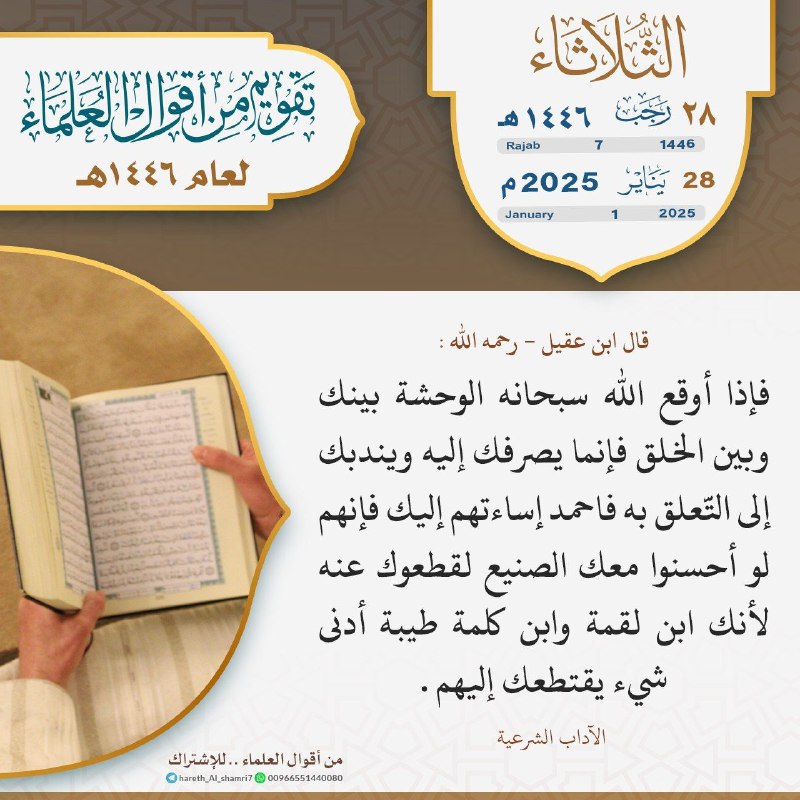 الثُّلَاثَاء
٢٨ رَجَب ١٤٤٦هـ
Rajab 7 1446
28 يَنَايَر 2025م
January 1 2025
تَقْوِيم مِن أَقْوَال العُلَمَاء
لعام ١٤٤٦هـ
قال ابن عقيل - رحمه الله :
فإذا أوقع الله سبحانه الوحشة بينك
وبين الخلق فإنما يصرفك إليه ويندبك
إلى التّعلق به فاحمد إساءتهم إليك فإنهم
لو أحسنوا معك الصنيع لقطعوك عنه
لأنك ابن لقمة وابن كلمة طيبة أدنى
شيء يقتطعك إليهم .
الآداب الشرعية
من أقوال العلماء .. للإشتراك
hareth_Al_shamri7 00966551440080